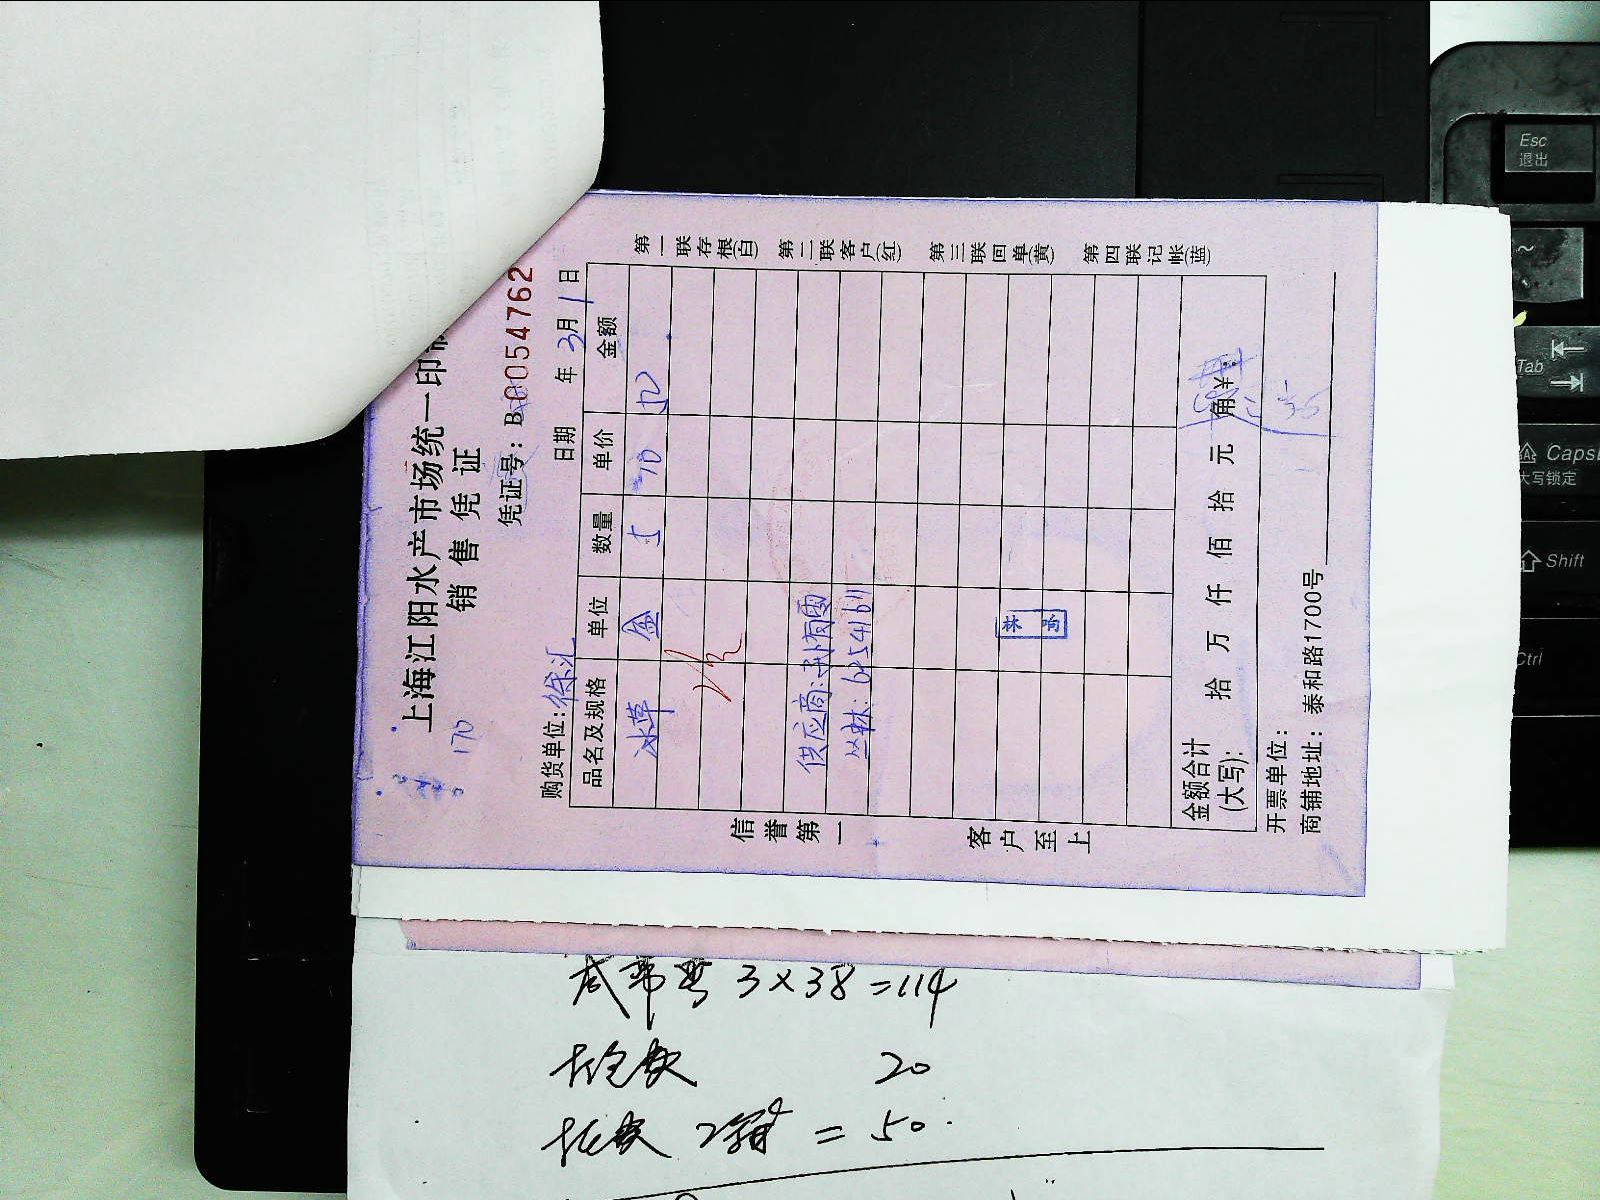 上海江阳水产市场统一印制
销售凭证
170
凭证号：B 0054762
购货单位：徐汇
日期 年 3月 1日
品名及规格 单位 数量 单价 金额
冰草 盒 5 10 50
供应商：孙有雷
丛林：62541611
林
金额合计
(大写)：
拾 万 仟 佰 拾 元 角 ¥：
开票单位：
商铺地址：泰和路1700号
信誉第一
客户至上
第一联存根(白)
第二联客户(红)
第三联回单(黄)
第四联记帐(蓝)
3×38=114
20
2箱 = 50.
Esc
退出
~
Tab
Caps
大写锁定
Shift
Ctrl